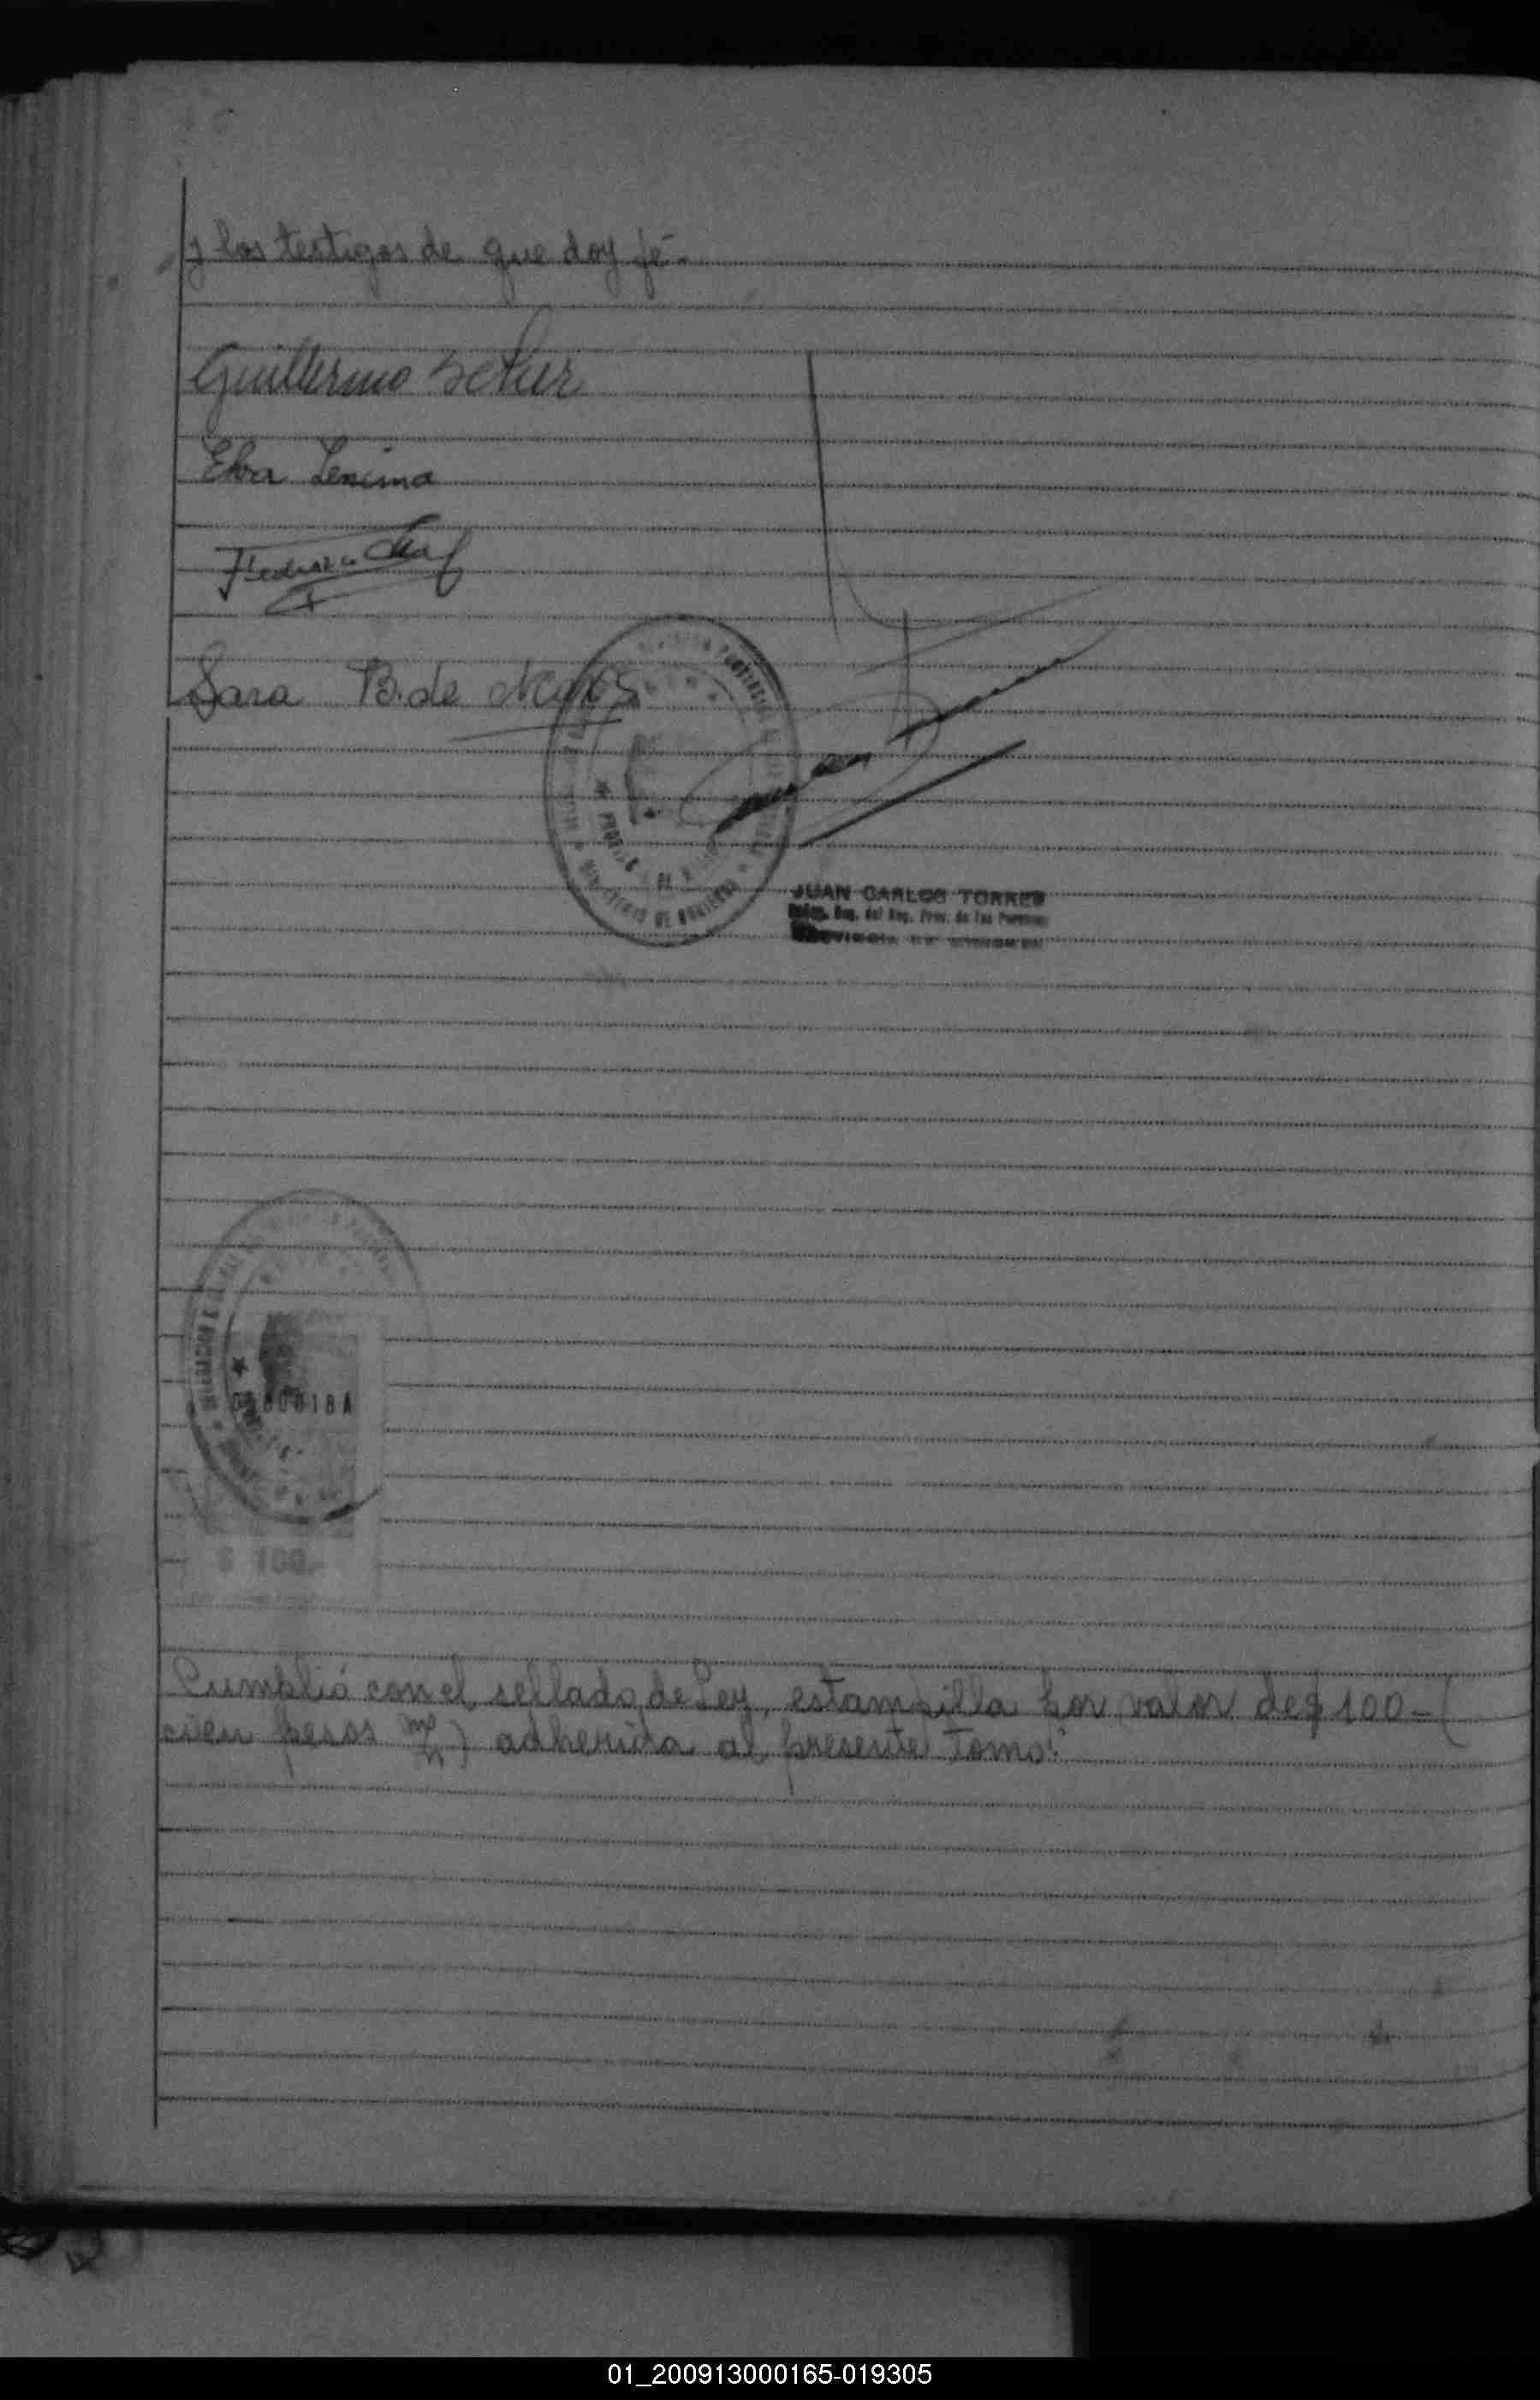 y los testigos de que doy fé.-
Guillermo
Elva Lencina
Federico
Sara B. de
JUAN CARLOS TORRES
Enc. del Reg. Prov. de las Personas
PROVINCIA DE MISIONES
MINISTERIO DE
018A
$ 100.-
Cumplió con el sellado de Ley, estampilla por valor de $ 100 - (
cien pesos m/n) adherida al presente Tomo.
01_200913000165-019305